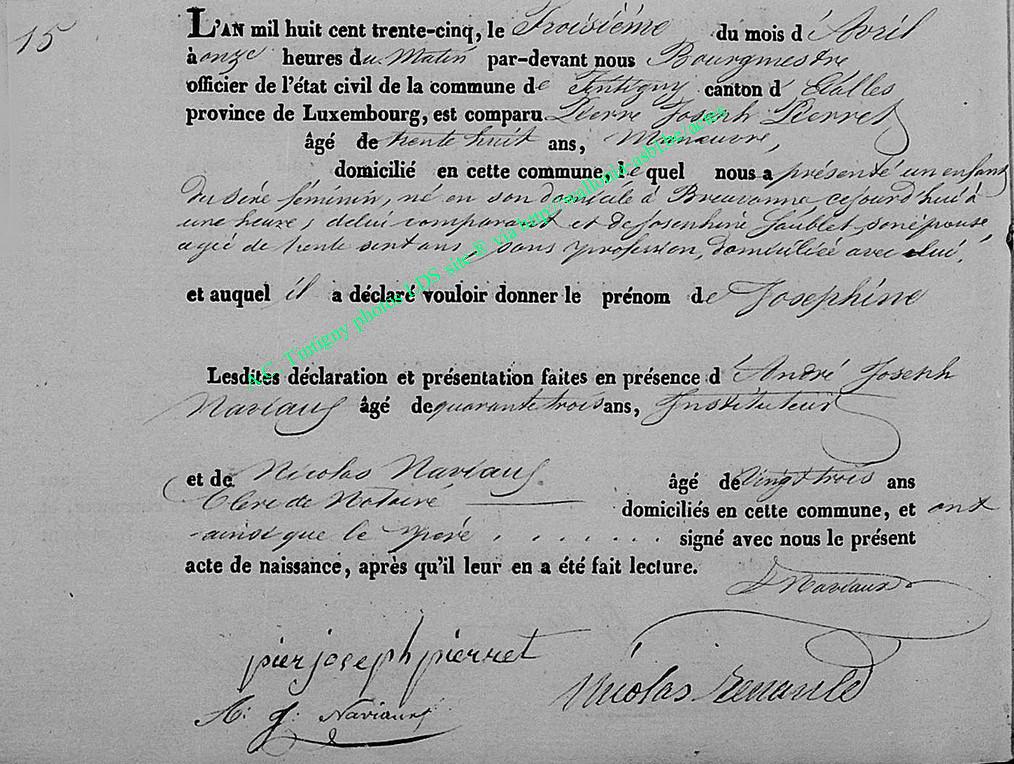 15
L'AN mil huit cent trente-cinq, le Troisième du mois d'Avril
à onze heures du Matin par-devant nous Bourgmestre
officier de l'état civil de la commune de Tintigny canton d'Etalles
province de Luxembourg, est comparu Pierre Joseph Pierret
âgé de trente huit ans, Manœuvre,
domicilié en cette commune, lequel nous a présenté un enfant
du sexe féminin, né en son domicile à Breuvanne cejourd'hui à
une heure, de lui comparant et de Josephine Goublet son épouse
agée de trente sept ans, sans profession, domiciliée avec lui,
et auquel il a déclaré vouloir donner le prénom de Josephine
Lesdites déclaration et présentation faites en présence d'André Joseph
Naviaux âgé de quarante trois ans, Instituteur
et de Nicolas Naviaux âgé de vingt trois ans
Clerc de Notaire domiciliés en cette commune, et ont
ainsi que le père . . . . . . . signé avec nous le présent
acte de naissance, après qu'il leur en a été fait lecture.
Naviaux
pier joseph pierret
Nicolas
A: J: Naviaux
A.C. Tintigny photos LDS site ® via http://wallonia-asbl.be/actes